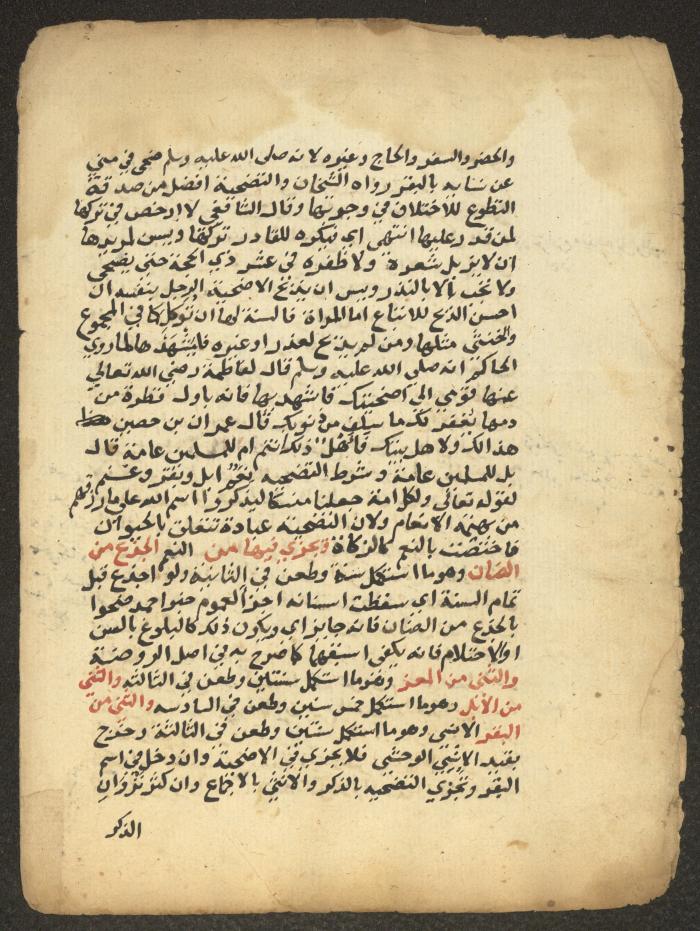 والحضر والسفر والحاج وغيره لانه صلى الله عليه وسلم ضحى في منى
عن نسايه بالبقر رواه الشيخان والتضحية افضل من صدقة
التطوع للاختلاف في وجوبها وقال الشافعي لا ارخص في تركها
لمن قدر عليها انتهى اي فيكره للقادر تركها ويسن لمريدها
ان لا يزيل شعره ولا ظفره في عشر ذي الحجة حتى يضحي
ولا تجب الا بالنذر ويسن ان يذبح الاضحية الرجل بنفسه ان
احسن الذبح للاتباع اما المراة فالسنة لها ان توكل كما في المجموع
والخنثى مثلها ومن لم يذبح لعذر او غيره فليشهدها لما روي
الحاكم انه صلى الله عليه وسلم قال لفاطمة رضي الله تعالى
عنها قومي الى اضحيتك فاشهديها فانه باول قطرة من
دمها يغفر لك ما سلف من ذنوبك قال عمران بن حصين
هذا لك ولاهل بيتك فاهل ذلك انتم ام للمسلمين عامة قال
بل للمسلمين عامة وشرط التضحيه نعم ابل وبقر وغنم
لقوله تعالى ولكل امة جعلنا منسكا ليذكروا اسم الله على ما رزقهم
من بهيمة الانعام ولان التضحية عبادة تتعلق بالحيوان
فاختصت بالنعم كالزكاة ويجزي فيها من النعم الجذع من
الضان وهو ما استكمل سنة وطعن في الثانية ولو اجذع قبل
تمام السنة اي سقطت اسنانه اجزا لعموم خبر احمد ضحوا
بالجذع من الضان فانه جايز اي ويكون ذلك كالبلوغ بالسن
او الاحتلام فانه يكفي اسبقهما كما صرح به في اصل الروضة
والثني من المعز وهو ما استكمل سنتين وطعن في الثالثه والثني
من الابل وهو ما استكمل خمس سنين وطعن في السادسه والثني من
البقر الانسي وهو ما استكمل سنتين وطعن في الثالثة وخرج
بقيد الانسي الوحشي فلا يجزي في الاضحية وان دخل في اسم
البقر وتجزي التضحيه بالذكر والانثى بالاجماع وان كثر نزوان
الذكر